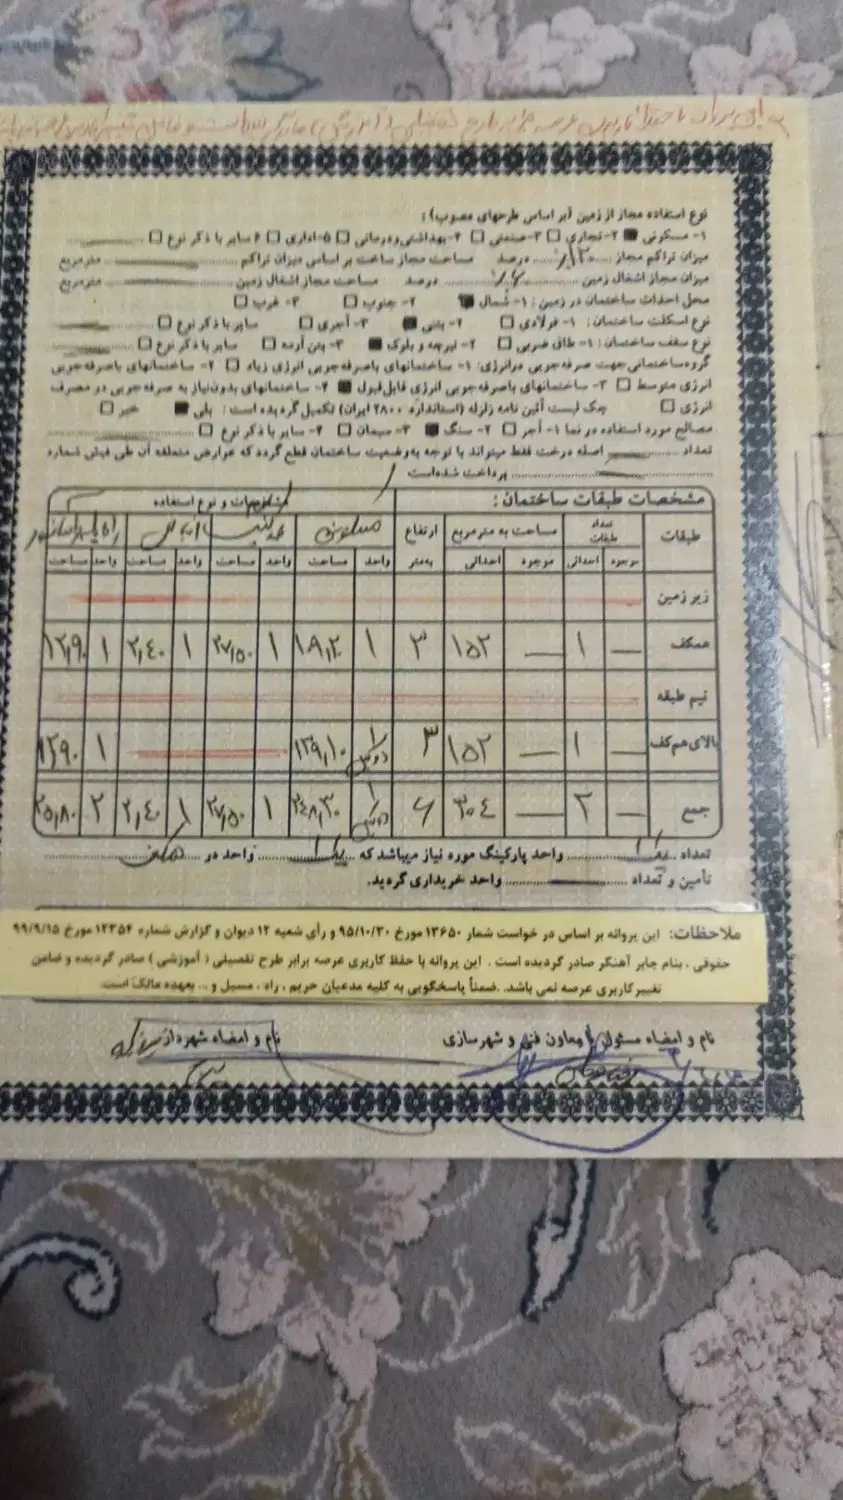 نوع استفاده مجاز از زمین (بر اساس طرحهای مصوب) :
۱- مسکونی ■ ۲- تجاری □ ۳- صنعتی □ ۴- بهداشتی ودرمانی □ ۵- اداری □ ۶ سایر با ذکر نوع □
میزان تراکم مجاز ٪۱۲۰ درصد مساحت مجاز ساخت بر اساس میزان تراکم مترمربع
میزان مجاز اشغال زمین درصد مساحت مجاز اشغال زمین مترمربع
محل احداث ساختمان در زمین : ۱- شمال ■ ۲- جنوب □ ۳- غرب □
نوع اسکلت ساختمان: ۱- فولادی □ ۲- بتنی ■ ۳- آجری □ سایر با ذکر نوع □
نوع سقف ساختمان : ۱- طاق ضربی □ ۲- تیرچه و بلوک ■ ۳- بتن آرمه □ سایر با ذکر نوع □
گروه ساختمانی جهت صرفه جویی درانرژی: ۱- ساختمانهای باصرفه جویی انرژی زیاد □ ۲- ساختمانهای باصرفه جویی
انرژی متوسط □ ۳- ساختمانهای باصرفه جویی انرژی قابل قبول ■ ۴- ساختمانهای بدون نیاز به صرفه جویی در مصرف
انرژی □ چک لیست آئین نامه زلزله (استاندارد ۲۸۰۰ ایران) تکمیل گردیده است : بلی ■ خیر □
مصالح مورد استفاده در نما ۱- آجر □ ۲- سنگ ■ ۳- سیمان □ ۴- سایر با ذکر نوع □
تعداد اصله درخت فقط میتواند با توجه به وضعیت ساختمان قطع گردد که عوارض متعلقه آن طی فیش شماره
پرداخت شده است
مشخصات طبقات ساختمان : مشخصات و نوع استفاده
طبقات تعداد طبقات مساحت به مترمربع ارتفاع مسکونی
موجود احداثی موجود احداثی به متر واحد مساحت واحد مساحت واحد مساحت واحد مساحت
زیر زمین
همکف — ۱ — ۱۵۲ ۳ ۱ ۱ ۲۷,۵۰ ۱ ۲,۴۰ ۱ ۱۲,۹۰
نیم طبقه
بالای هم کف — ۱ — ۱۵۲ ۳ ۱ ۱۳۹,۱۰ ۱ ۱۲,۹۰
جمع — ۲ — ۳۰۴ ۶ ۱ ۲۴۸,۳۰ ۱ ۲۷,۵۰ ۱ ۲,۴۰ ۲ ۲۵,۸۰
تعداد واحد پارکینگ مورد نیاز میباشد که واحد در همکف
تأمین و تعداد واحد خریداری گردید.
ملاحظات: این پروانه بر اساس در خواست شمار ۱۳۶۵۰ مورخ ۹۵/۱۰/۲۰ و رأی شعبه ۱۲ دیوان و گزارش شماره ۱۲۳۵۴ مورخ ۹۹/۹/۱۵
حقوقی ، بنام جابر آهنگر صادر گردیده است . این پروانه با حفظ کاربری عرصه برابر طرح تفصیلی ( آموزشی ) صادر گردیده و ضامن
تغییر کاربری عرصه نمی باشد. .ضمناً پاسخگویی به کلیه مدعیان حریم ، راه ، مسیل و ... بعهده مالک است.
نام و امضاء مسئول یا معاون فنی و شهرسازی نام و امضاء شهردار